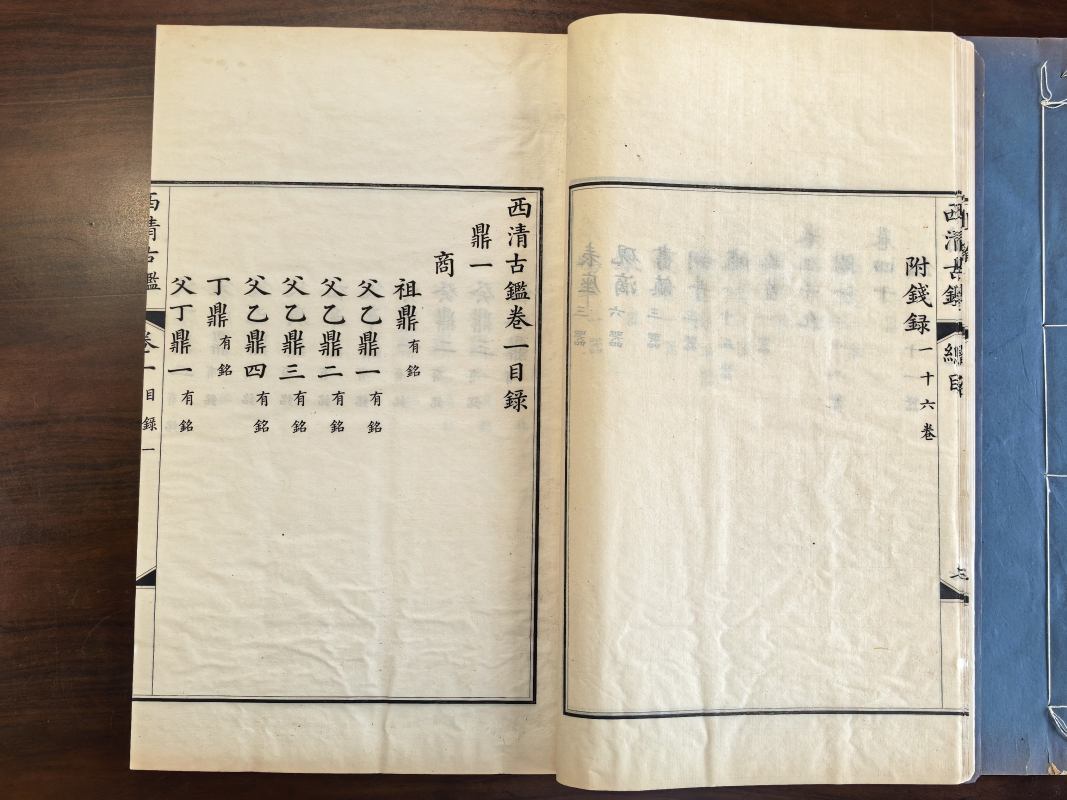 西清古鑑
總目
七
附錢録一十六卷
西清古鑑卷一目録
鼎一
商
祖鼎有銘
父乙鼎一有銘
父乙鼎二有銘
父乙鼎三有銘
父乙鼎四有銘
丁鼎有銘
父丁鼎一有銘
西清古鑑
卷一
目録一